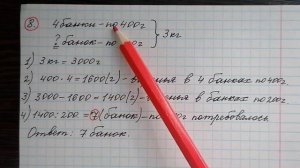 8.
4 банки - по 400г
? банок - по 200г } 3 кг
1) 3 кг = 3000г
2) 400·4 = 1600(г) - в 4 банках по 400г.
3) 3000-1600 = 1400(г) - в банках по 200г.
4) 1400:200 = 7 (банок) - по потребовалось
Ответ: 7 банок.